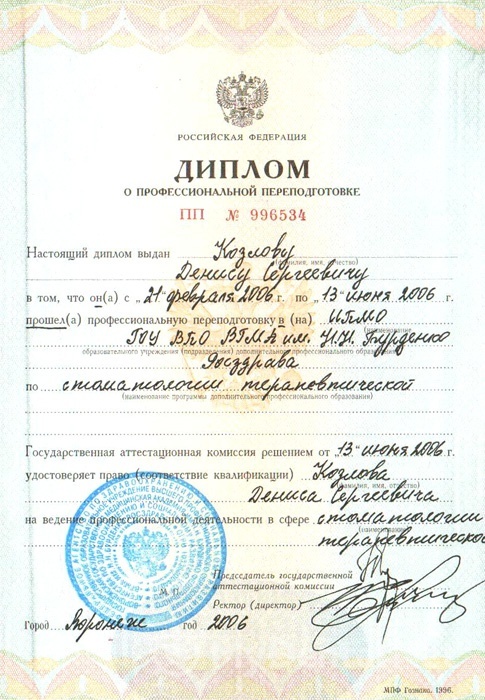 РОССИЙСКАЯ ФЕДЕРАЦИЯ
ДИПЛОМ
О ПРОФЕССИОНАЛЬНОЙ ПЕРЕПОДГОТОВКЕ
ПП № 996534
Настоящий диплом выдан Козлову
(фамилия, имя, отчество)
Денису Сергеевичу
в том, что он(а) с „21“ февраля 2006 г. по „13“ июня 2006 г.
прошел(а) профессиональную переподготовку в (на) ИПМО
(наименование
ГОУ ВПО ВГМА им. Н.Н. Бурденко
образовательного учреждения (подразделения) дополнительного профессионального образования)
Росздрава
по стоматологии терапевтической
(наименование программы дополнительного профессионального образования)
Государственная аттестационная комиссия решением от „13“ июня 2006 г.
удостоверяет право (соответствие квалификации) Козлова
(фамилия, имя, отчество)
Дениса Сергеевича
на ведение профессиональной деятельности в сфере стоматологии
(наименование
терапевтической
Председатель государственной
аттестационной комиссии
М.П.
Ректор (директор)
Город Воронеж год 2006
МПФ Гознака. 1996.